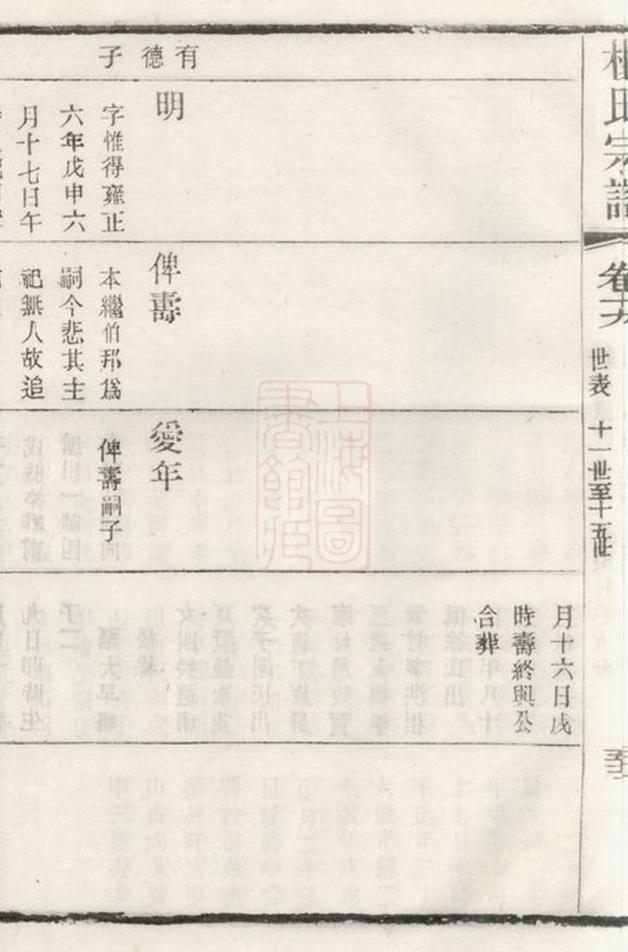 氏宗譜
卷十六
世表 十一世至十五世
有德子
明
字惟得雍正
六年戊申六
月十七日午
俾壽
本繼伯邦爲
嗣今悲其主
祀無人故追
愛年
俾壽嗣子
月十六日戌
時壽終與公
合葬
上海圖書館藏